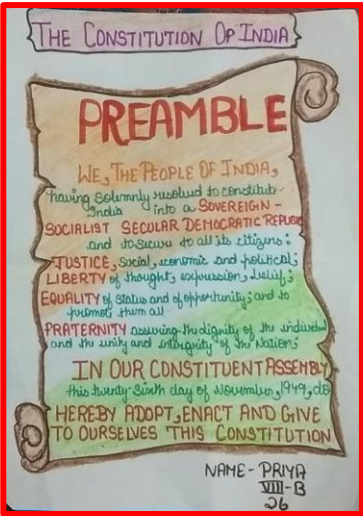 THE CONSTITUTION OF INDIA
PREAMBLE
WE, THE PEOPLE OF INDIA,
having solemnly resolved to constitute
India into a SOVEREIGN-
SOCIALIST SECULAR DEMOCRATIC REPUBLIC
and to secure to all its citizens:
JUSTICE, social, economic and political;
LIBERTY of thought, expression, belief;
EQUALITY of status and of opportunity; and to
promote them all
FRATERNITY assuring the dignity of the individual
and the unity and integrity of the Nation;
IN OUR CONSTITUENT ASSEMBLY
this twenty-sixth day of November, 1949, do
HEREBY ADOPT, ENACT AND GIVE
TO OURSELVES THIS CONSTITUTION
NAME- PRIYA
VIII-B
26